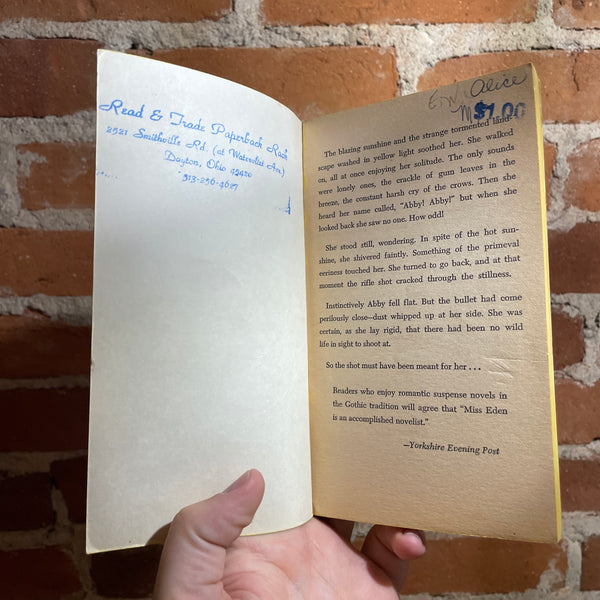 Read & Trade Paperback Rack
2521 Smithville Rd. (at Watervliet Ave.)
Dayton, Ohio 45420
513-256-4627
E.W. Alice
M $1.00
The blazing sunshine and the strange tormented land-
scape washed in yellow light soothed her. She walked
on, all at once enjoying her solitude. The only sounds
were lonely ones, the crackle of gum leaves in the
breeze, the constant harsh cry of the crows. Then she
heard her name called, "Abby! Abby!" but when she
looked back she saw no one. How odd!
She stood still, wondering. In spite of the hot sun-
shine, she shivered faintly. Something of the primeval
eeriness touched her. She turned to go back, and at that
moment the rifle shot cracked through the stillness.
Instinctively Abby fell flat. But the bullet had come
perilously close—dust whipped up at her side. She was
certain, as she lay rigid, that there had been no wild
life in sight to shoot at.
So the shot must have been meant for her . . .
Readers who enjoy romantic suspense novels in
the Gothic tradition will agree that "Miss Eden
is an accomplished novelist."
—Yorkshire Evening Post